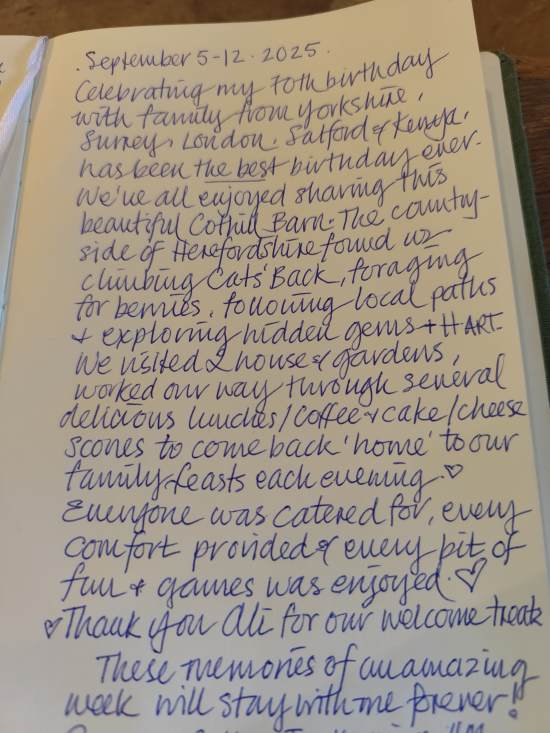 . September 5-12. 2025.
Celebrating my 70th birthday
with family from Yorkshire,
Surrey, London, Salford & Kenya,
has been the best birthday ever.
We've all enjoyed sharing this
beautiful Cothill Barn. The country-
side of Herefordshire found us
climbing Cats' Back, foraging
for berries, following local paths
+ exploring hidden gems + HART.
We visited 2 house & gardens,
worked our way through several
delicious lunches/coffee & cake/cheese
scones to come back 'home' to our
family feasts each evening. ♡
Everyone was catered for, every
comfort provided & every bit of
fun + games was enjoyed. ♡
♡ Thank you Ali for our welcome treats
These memories of an amazing
week will stay with me forever!!